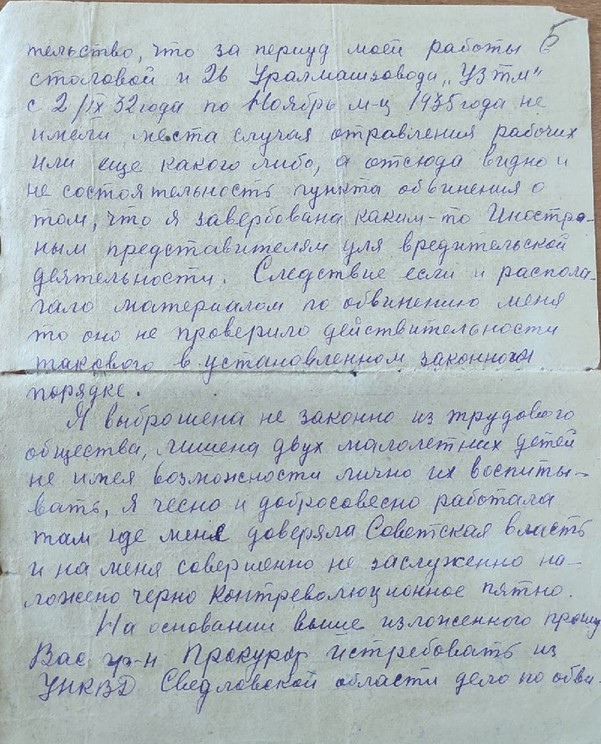 5
тельство, что за период моей работы в
столовой и 26 Уралмашзавода „УЗТМ"
с 2/IX 32 года по Ноябрь м-ц 1935 года не
имели места случая отравления рабочих
или еще какого либо, а отсюда видно и
не состоятельность пункта обвинения о
том, что я завербована каким-то Иностра-
ным представителям для вредительской
деятельности. Следствие если и распола-
гало материалом по обвинению меня
то оно не проверило действительности
такового в установленном законном
порядке.
Я выброшена не законно из трудового
общества, лишена двух малолетних детей
не имея возможности лично их воспиты-
вать, я чесно и добросовесно работала
там где меня доверяла Советская власть
и на меня совершенно не заслуженно на-
ложено черно контреволюционное пятно.
На основании выше изложенного прошу
Вас гр-н Прокурор истребовать из
УНКВД Свердловской области дело по обви-